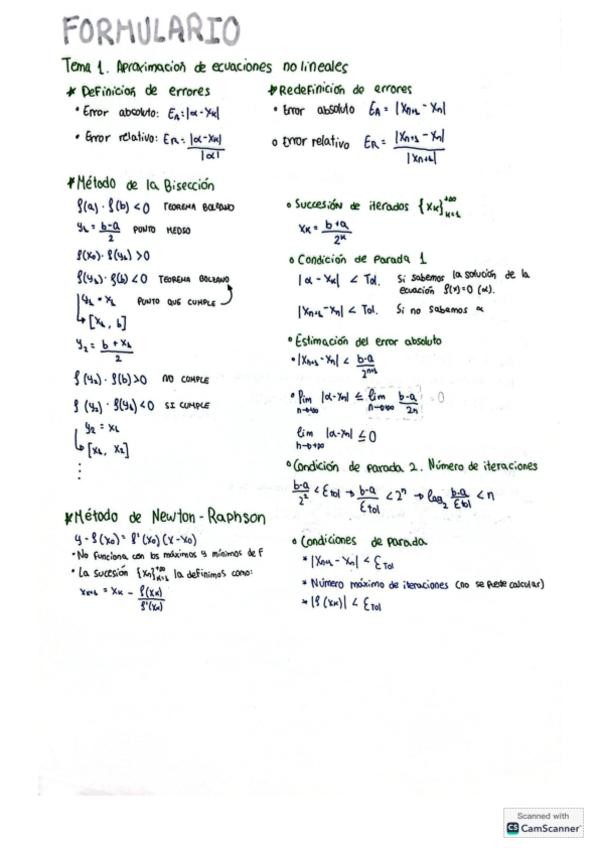 FORMULARIO
Tema 1. Aproximacion de ecuaciones no lineales
* Definicion de errores
• Error absoluto: EA=|α-xk|
• Error relativo: ER=|α-xk|/|α|
* Redefinición de errores
• Error absoluto EA = |xn+1 - xn|
o Error relativo ER = |xn+1 - xn|/|xn+1|
* Método de la Bisección
f(a)·f(b)<0 TEOREMA BOLZANO
y1 = b-a/2 PUNTO MEDIO
f(x0)·f(y1)>0
f(y1)·f(b)<0 TEOREMA BOLZANO
y1 = x1 PUNTO QUE CUMPLE
[x1, b]
y2 = b+x1/2
f(y2)·f(b)>0 NO CUMPLE
f(y2)·f(y1)<0 SI CUMPLE
y2 = x2
[x1, x2]
⋮
• Succesión de iterados {xk}+∞k=1
xk = b+a/2^k
o Condición de Parada 1
|α - xk| < Tol. Si sabemos la solución de la
ecuación f(x)=0 (α).
|xn+1-xn| < Tol. Si no sabemos α
• Estimación del error absoluto
• |xn+1-xn| < b-a/2^n+1
• lim n→+∞ |α-xn| ≤ lim n→+∞ b-a/2n = 0
lim n→+∞ |α-xn| ≤ 0
• Condición de parada 2. Número de iteraciones
b-a/2^n < Etol → b-a/Etol < 2^n → log2 b-a/Etol < n
* Método de Newton-Raphson
y - f(x0) = f'(x0)(x-x0)
• No funciona con los máximos y mínimos de f
• La sucesión {xn}+∞k=1 la definimos como:
xk+1 = xk - f(xk)/f'(xk)
o Condiciones de parada
* |xn+1 - xn| < ETol
* Número máximo de iteraciones (no se puede calcular)
* |f(xk)| < ETol
Scanned with
CS CamScanner